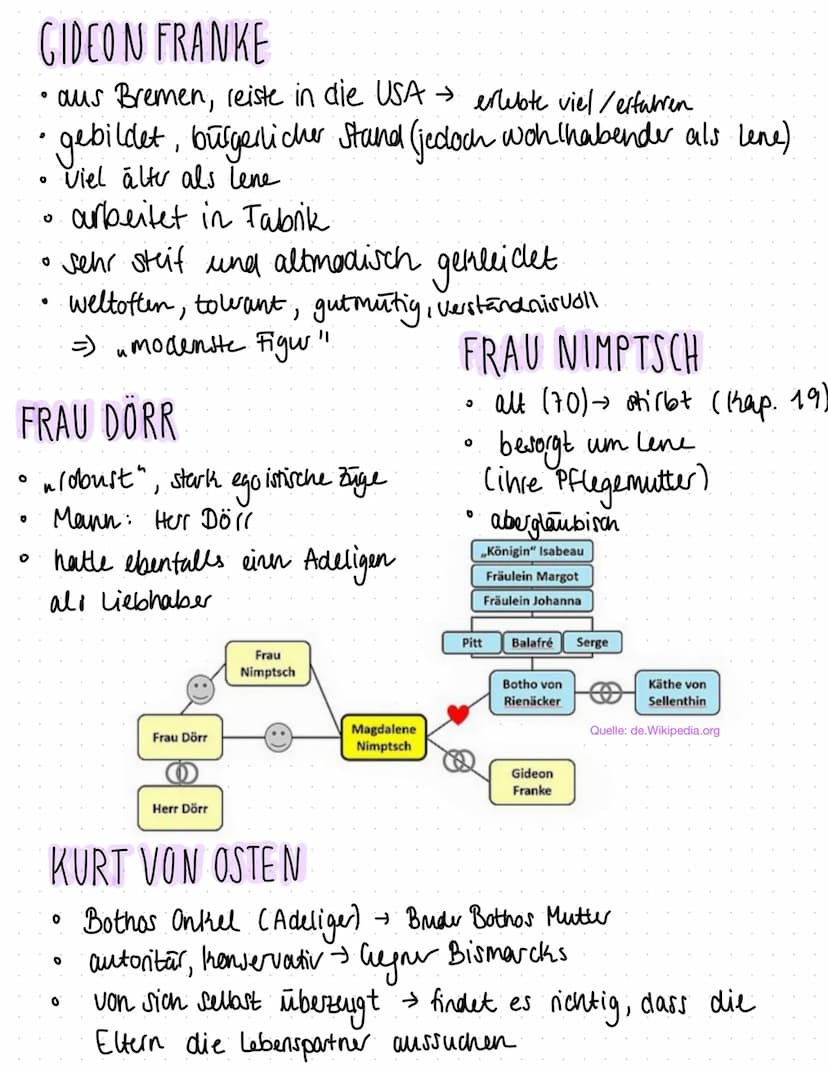 GIDEON FRANKE
• aus Bremen, reiste in die USA → erlebte viel / erfahren
• gebildet, bürgerlicher Stand (jedoch wohlhabender als Lene)
• viel älter als Lene
• arbeitet in Fabrik
• sehr steif und altmodisch gekleidet
• weltoffen, tolerant, gutmütig, verständnisvoll
⇒ „modernste Figur"
FRAU NIMPTSCH
• alt (70) → stirbt (Kap. 19)
• besorgt um Lene
(ihre Pflegemutter)
• abergläubisch
FRAU DÖRR
• „robust", stark egoistische Züge
• Mann: Herr Dörr
• hatte ebenfalls einen Adeligen
als Liebhaber
„Königin" Isabeau
Fräulein Margot
Fräulein Johanna
Pitt Balafré Serge
Frau
Nimptsch
Botho von
Rienäcker
Käthe von
Sellenthin
Frau Dörr
Magdalene
Nimptsch
Quelle: de.Wikipedia.org
Gideon
Franke
Herr Dörr
KURT VON OSTEN
• Bothos Onkel (Adeliger) → Bruder Bothos Mutter
• autoritär, konservativ → Gegner Bismarcks
• von sich selbst überzeugt → findet es richtig, dass die
Eltern die Lebenspartner aussuchen